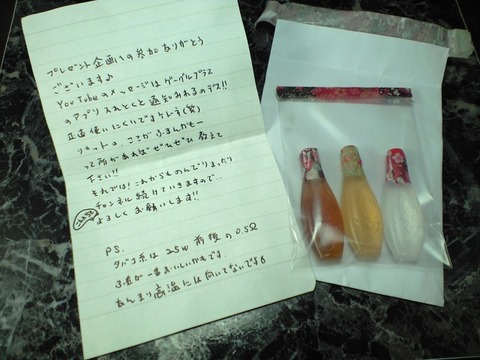 プレゼント企画への参加ありがとう
ございます♪
YouTubeのメッセージはグーグルプラス
のアプリ入れとくと通知みれるのデス!!
正直使いにくいですケドネ(笑)
ここがふまんだもー
って所があればぜひぜひ教えて
下さい!!
それでは!これからものんびりまったり
チャンネル続けていきますので…
よろしくお願いします!!
P.S.
タバコ系は25w前後の0.5Ω
が一番おいしいかもです。
あんまり高温には向いてないです